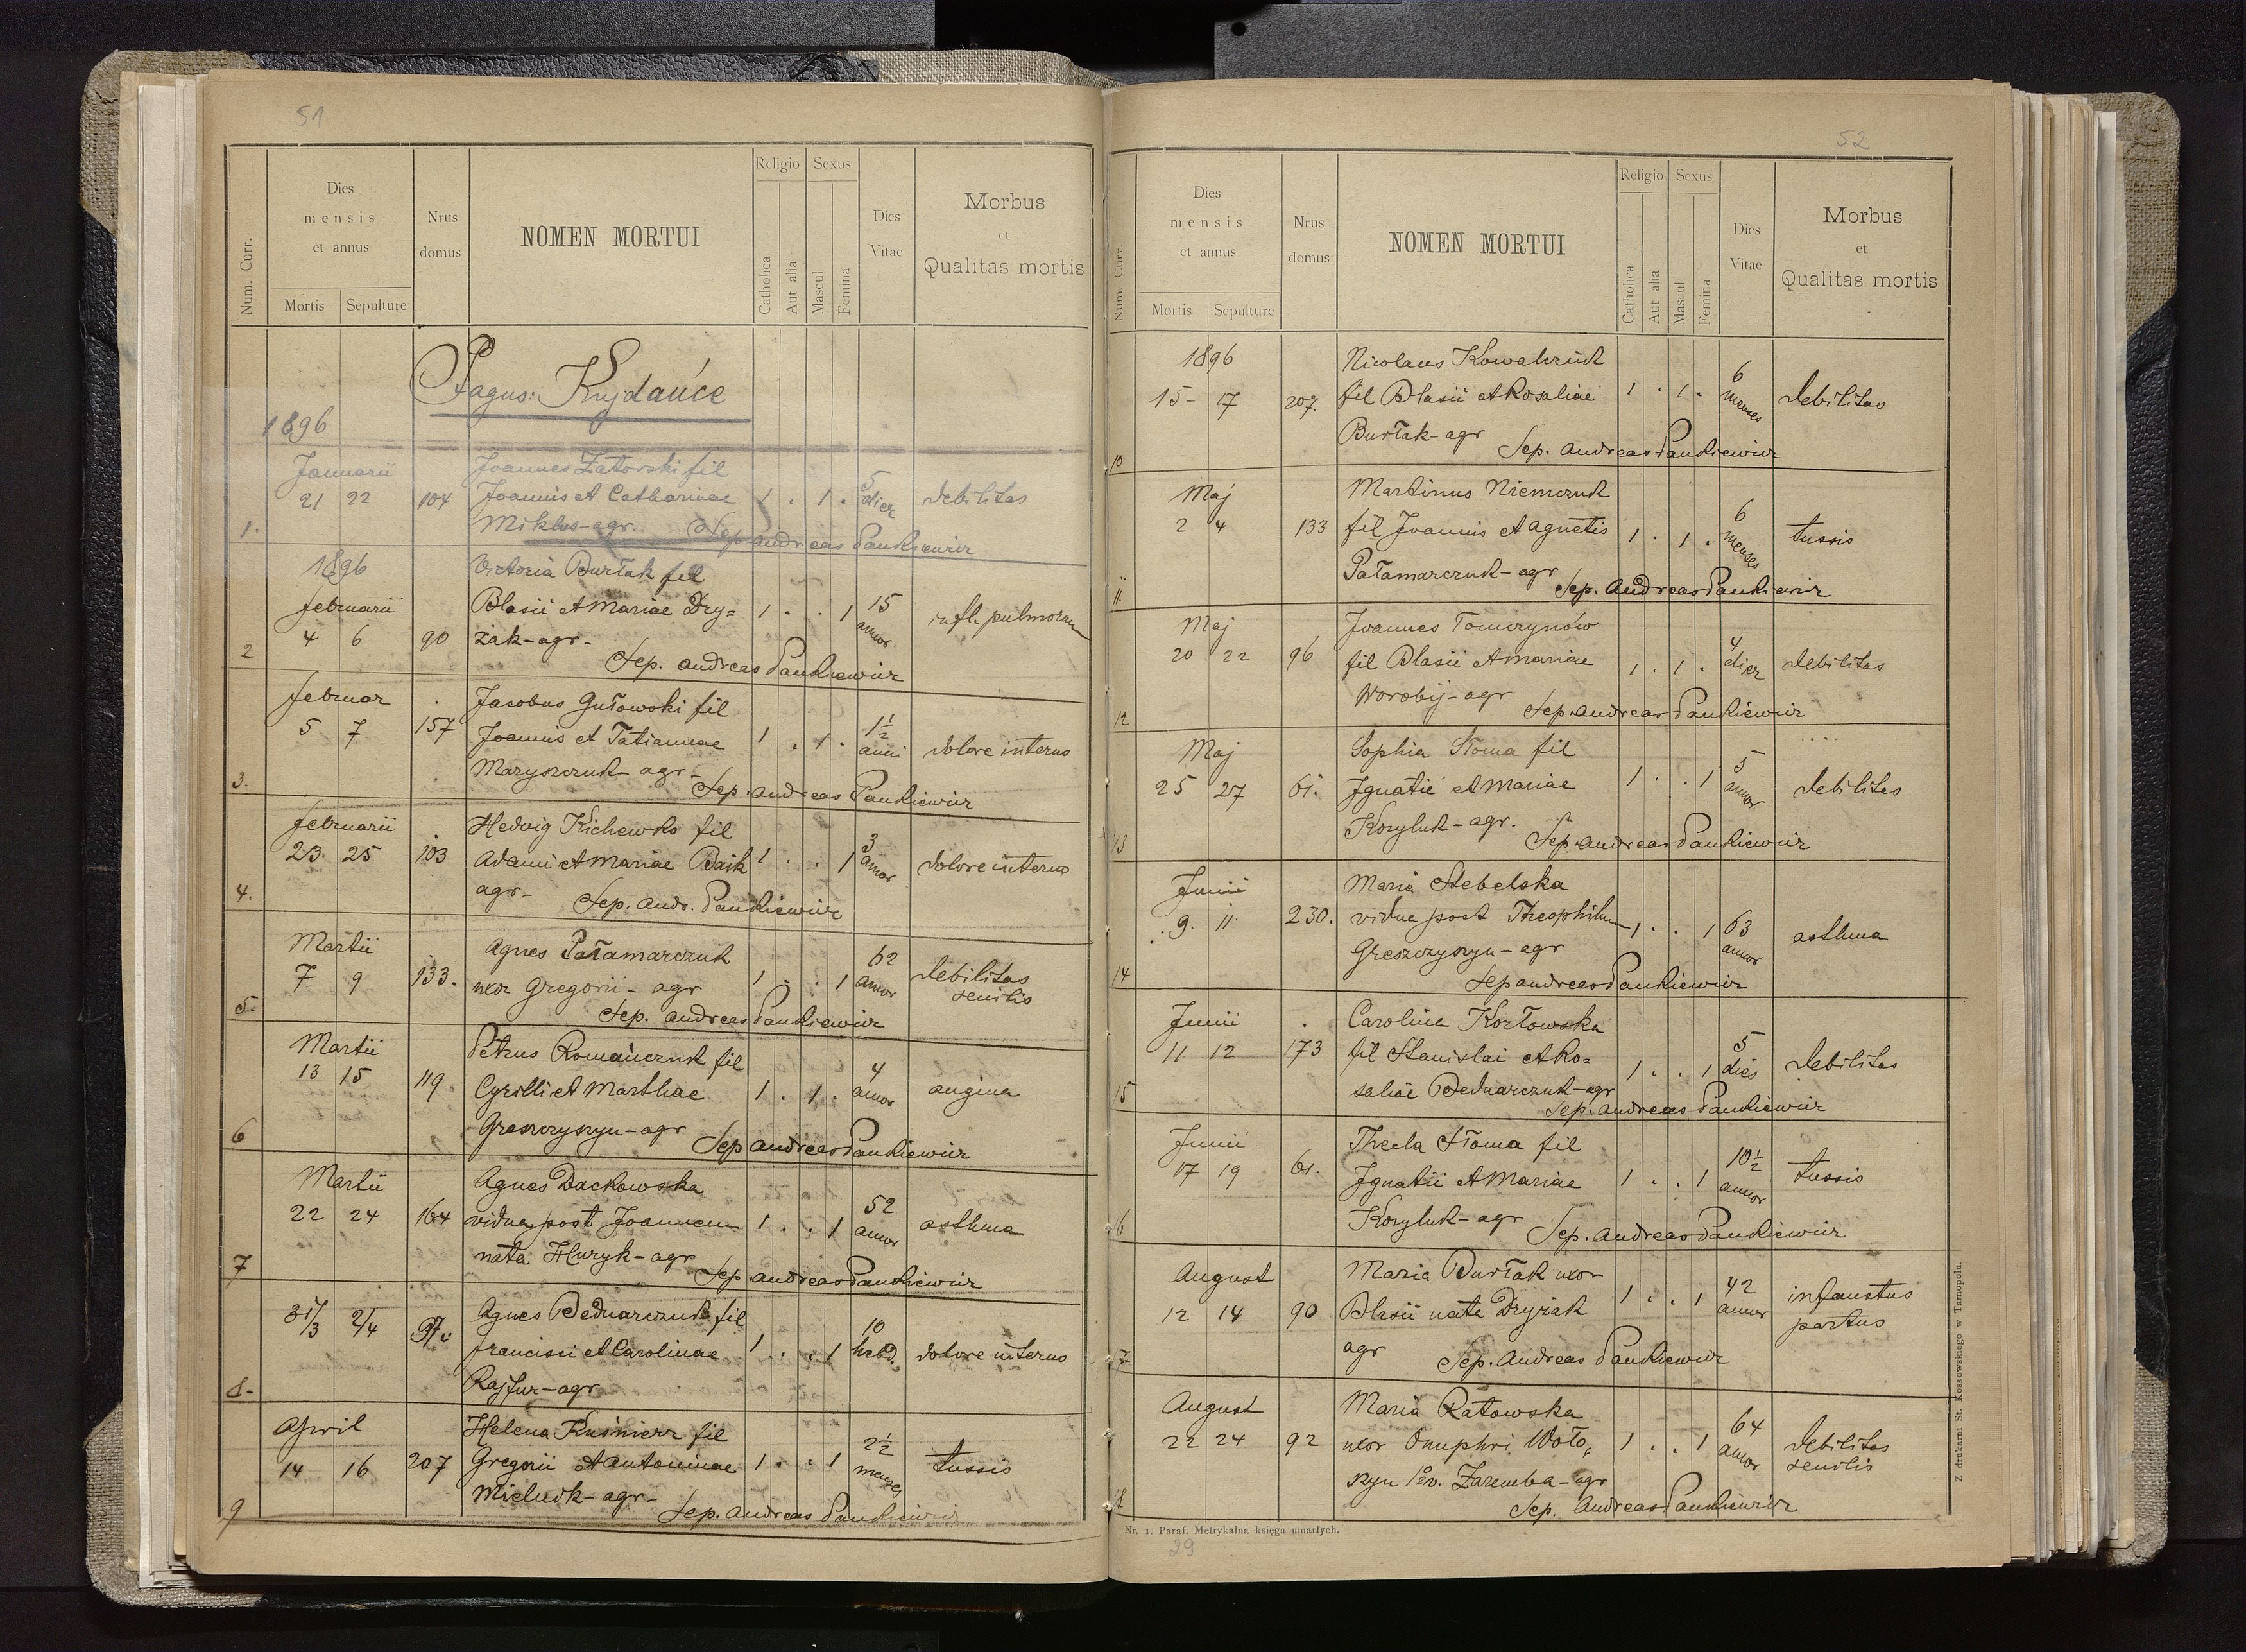 51
Num. Curr.
Dies mensis et annus
Mortis Sepulture
Nrus domus
NOMEN MORTUI
Religio
Catholica
Aut alia
Sexus
Mascul
Femina
Dies Vitae
Morbus et Qualitas mortis
Pagus: Kujdańce
1896
Januarii
Joannes Zatorski fil
21 22 104 Joannis et Catharinae 1 . 1 . 5 dier debilitas
1. Miklas-agr. Sep. Andreas Pankiewicz
1896
Victoria Burłak fil
Februarii
Blasii et Mariae Dry= 1 . . 1 15 annor infl. pulmonum
2 4 6 90 zak-agr-
Sep. Andreas Pankiewicz
Februar
Jacobus Gutowski fil
5 7 157 Joannis et Tatiannae 1 . 1 . 1½ anni dolore interno
3. Maryszczuk-agr-
Sep. Andreas Pankiewicz
Februarii
Hedvig Kichewko fil
23 25 103 Adami et Mariae Baik 1 . . 1 3 annor dolore interno
4. agr- Sep. Andr. Pankiewicz
Martii
Agnes Pałamarczuk
7 9 133. uxor Gregorii - agr 1 . . 1 62 annor debilitas senilis
5. Sep. Andreas Pankiewicz
Martii
Petrus Romańczuk fil
13 15 119 Cyrilli et Marthae 1 . 1 . 4 annor angina
6 Greszczyszyn-agr
Sep Andreas Pankiewicz
Martii
Agnes Dackowska
22 24 164 vidua post Joannem 1 . . 1 52 annor asthma
7 nata Huryk-agr
Sep Andreas Pankiewicz
31/3 2/4 97. Agnes Bednarczuk fil
Francisci et Carolinae 1 . . 1 10 hebd. dolore interno
8. Rajfur-agr
April
Helena Kuśnierz fil
14 16 207 Gregorii et Antoninae 1 . . 1 2½ menses tussis
9 Mieludk-agr-
Sep. Andreas Pankiewicz
52
Num. Curr.
Dies mensis et annus
Mortis Sepulture
Nrus domus
NOMEN MORTUI
Religio
Catholica
Aut alia
Sexus
Mascul
Femina
Dies Vitae
Morbus et Qualitas mortis
1896
Nicolaus Kowalczuk
15- 17 207. fil Blasii et Rosaliae 1 . 1 . 6 menses debilitas
10 Burłak-agr Sep. Andreas Pankiewicz
Maj
Martinus Niemczuk
2 4 133 fil Joannis et Agnetis 1 . 1 . 6 menses tussis
11. Pałamarczuk-agr
Sep. Andreas Pankiewicz
Maj
Joannes Tomczynów
20 22 96 fil Blasii et Mariae 1 . 1 . 4 dier debilitas
12 Worobij-agr Sep. Andreas Pankiewicz
Maj
Sophia Słoma fil
25 27 61. Ignatii et Mariae 1 . . 1 5 annor debilitas
13 Koryluk-agr. Sep. Andreas Pankiewicz
Junii
Maria Stebelska
9. 11. 230. vidua post Theophilum 1 . . 1 63 annor asthma
14 Greszczyszyn-agr
Sep Andreas Pankiewicz
Junii
Carolina Kozłowska
11 12 173 fil Stanislai et Ro= 1 . . 1 5 dies debilitas
15 saliae Bednarczuk-agr
Sep. Andreas Pankiewicz
Junii
Thecla Słoma fil
17 19 61. Ignatii et Mariae 1 . . 1 10½ annor tussis
16 Koryluk-agr Sep. Andreas Pankiewicz
August
Maria Burłak uxor
12 14 90 Blasii nata Dryżak 1 . . 1 42 annor infaustus partus
17 agr Sep. Andreas Pankiewicz
August
Maria Ratowska
22 24 92 uxor Onuphri Woło, 1 . . 1 64 annor debilitas senilis
18 szyn 1o v. Zaremba-agr
Sep. Andreas Pankiewicz
Nr. 1. Paraf. Metrykalna księga umarłych.
29
Z drukarni St. Kossowskiego w Tarnopolu.